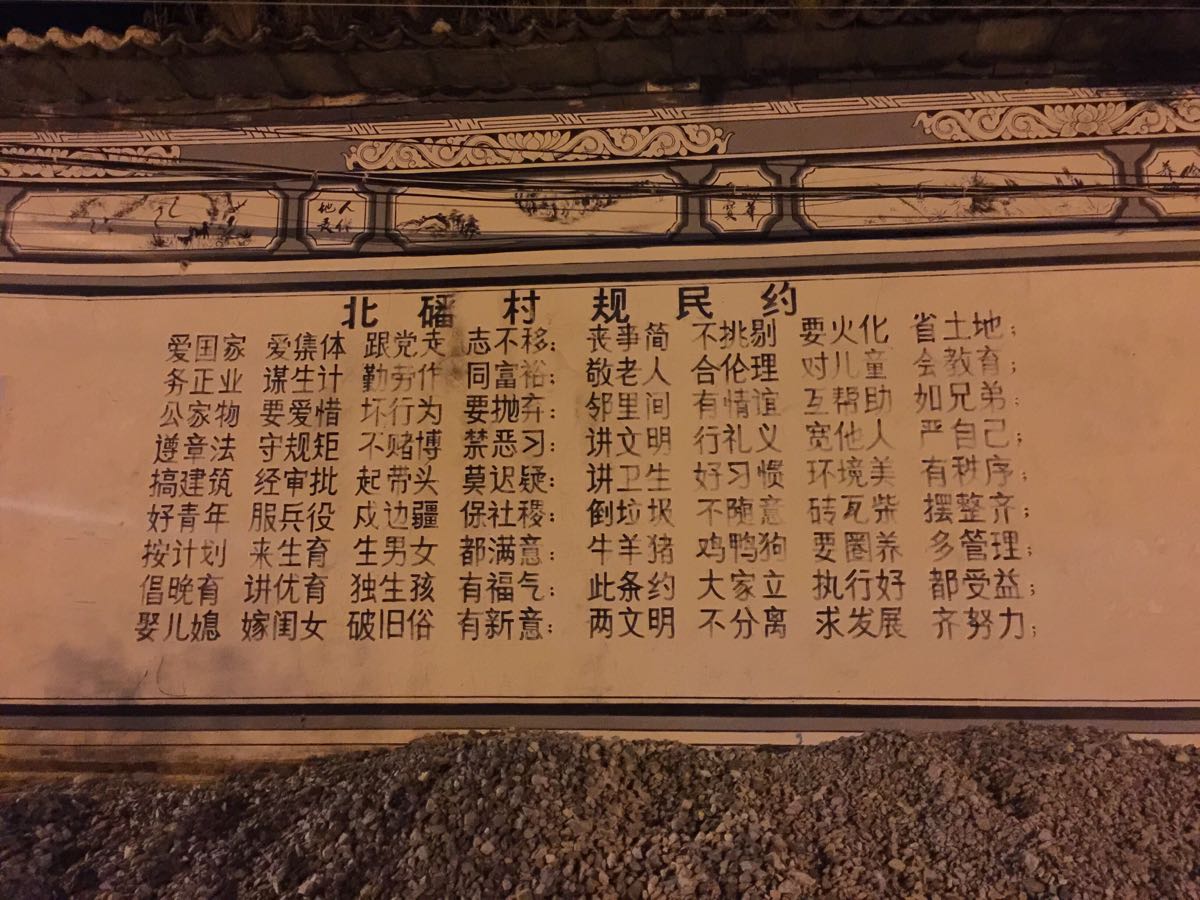 地人
灵杰
北磻村规民约
爱国家 爱集体 跟党走 志不移; 丧事简 不挑剔 要火化 省土地;
务正业 谋生计 勤劳作 同富裕; 敬老人 合伦理 对儿童 会教育;
公家物 要爱惜 坏行为 要抛弃: 邻里间 有情谊 互帮助 如兄弟;
遵章法 守规矩 不赌博 禁恶习: 讲文明 行礼义 宽他人 严自己;
搞建筑 经审批 起带头 莫迟疑: 讲卫生 好习惯 环境美 有秩序;
好青年 服兵役 戍边疆 保社稷: 倒垃圾 不随意 砖瓦柴 摆整齐;
按计划 来生育 生男女 都满意: 牛羊猪 鸡鸭狗 要圈养 多管理;
倡晚育 讲优育 独生孩 有福气: 此条约 大家立 执行好 都受益;
娶儿媳 嫁闺女 破旧俗 有新意: 两文明 不分离 求发展 齐努力;